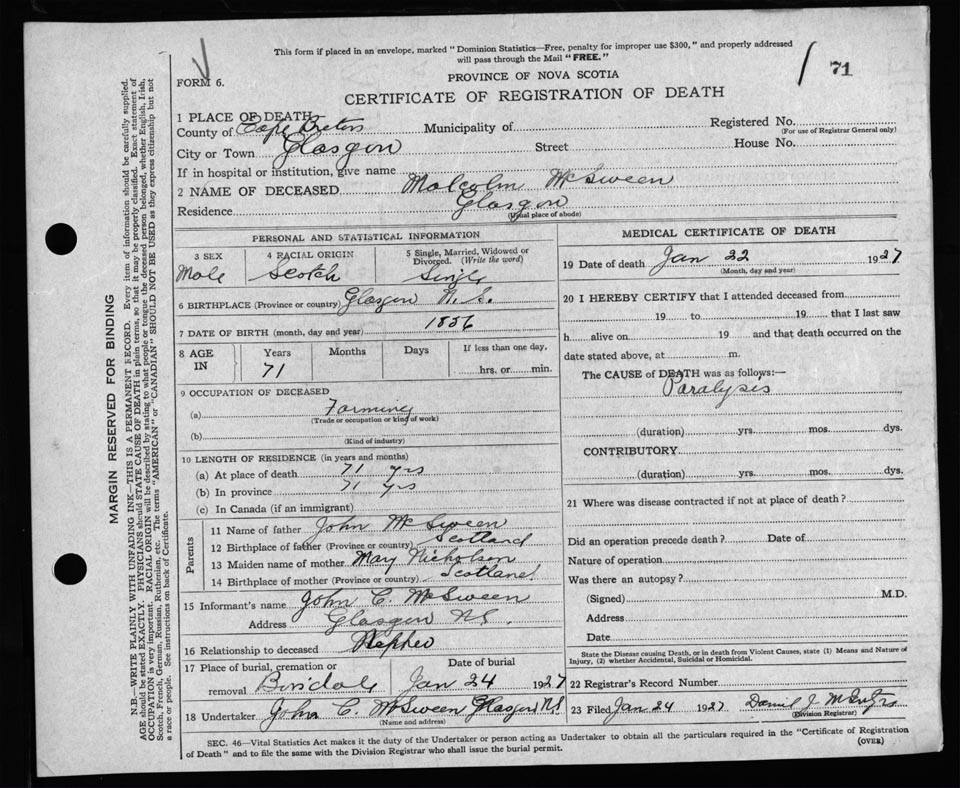 This form if placed in an envelope, marked "Dominion Statistics—Free, penalty for improper use $300," and properly addressed
will pass through the Mail "FREE."
71
FORM 6.
PROVINCE OF NOVA SCOTIA
CERTIFICATE OF REGISTRATION OF DEATH
1 PLACE OF DEATH
County of Cape Breton Municipality of Registered No.
(For use of Registrar General only)
City or Town Glasgow Street House No.
If in hospital or institution, give name
2 NAME OF DECEASED Malcolm McSween
Residence Glasgow
(Usual place of abode)
PERSONAL AND STATISTICAL INFORMATION
3 SEX 4 RACIAL ORIGIN 5 Single, Married, Widowed or
Divorced. (Write the word)
Male Scotch Single
6 BIRTHPLACE (Province or country) Glasgow N.S.
7 DATE OF BIRTH (month, day and year) 1856
8 AGE IN Years Months Days If less than one day,
71 hrs. or min.
9 OCCUPATION OF DECEASED
(a) Farming
(Trade or occupation or kind of work)
(b)
(Kind of industry)
10 LENGTH OF RESIDENCE (in years and months)
(a) At place of death 71 yrs
(b) In province 71 yrs
(c) In Canada (if an immigrant)
Parents
11 Name of father John McSween
12 Birthplace of father (Province or country) Scotland
13 Maiden name of mother Mary Nicholson
14 Birthplace of mother (Province or country) Scotland
15 Informant's name John C. McSween
Address Glasgow N.S.
16 Relationship to deceased Nephew
17 Place of burial, cremation or Date of burial
removal Jan 24 1927
18 Undertaker John C. McSween Glasgow N.S.
(Name and address)
MEDICAL CERTIFICATE OF DEATH
19 Date of death Jan 22 1927
(Month, day and year)
20 I HEREBY CERTIFY that I attended deceased from
19 to 19 that I last saw
h alive on 19 and that death occurred on the
date stated above, at m.
The CAUSE of DEATH was as follows:—
Paralysis
(duration) yrs. mos. dys.
CONTRIBUTORY
(duration) yrs. mos. dys.
21 Where was disease contracted if not at place of death?
Did an operation precede death? Date of
Nature of operation
Was there an autopsy?
(Signed) M.D.
Address
Date
State the Disease causing Death, or in death from Violent Causes, state (1) Means and Nature of
Injury, (2) whether Accidental, Suicidal or Homicidal.
22 Registrar's Record Number
23 Filed Jan 24 1927 Daniel J.
(Division Registrar)
SEC. 46—Vital Statistics Act makes it the duty of the Undertaker or person acting as Undertaker to obtain all the particulars required in the "Certificate of Registration
of Death" and to file the same with the Division Registrar who shall issue the burial permit.
(OVER)
MARGIN RESERVED FOR BINDING
N.B.—WRITE PLAINLY WITH UNFADING INK—THIS IS A PERMANENT RECORD. Every item of information should be carefully supplied.
AGE should be stated EXACTLY. PHYSICIANS should STATE CAUSE OF DEATH in plain terms, so that it may be properly classified. Exact statement of
OCCUPATION is very important. RACIAL ORIGIN will be described by stating to what people or tongue the deceased person belonged, whether English, Irish,
Scotch, French, German, Russian, Ruthenian, etc. The terms "AMERICAN" or "CANADIAN" SHOULD NOT BE USED as they express citizenship but not
a race or people. See instructions on back of Certificate.